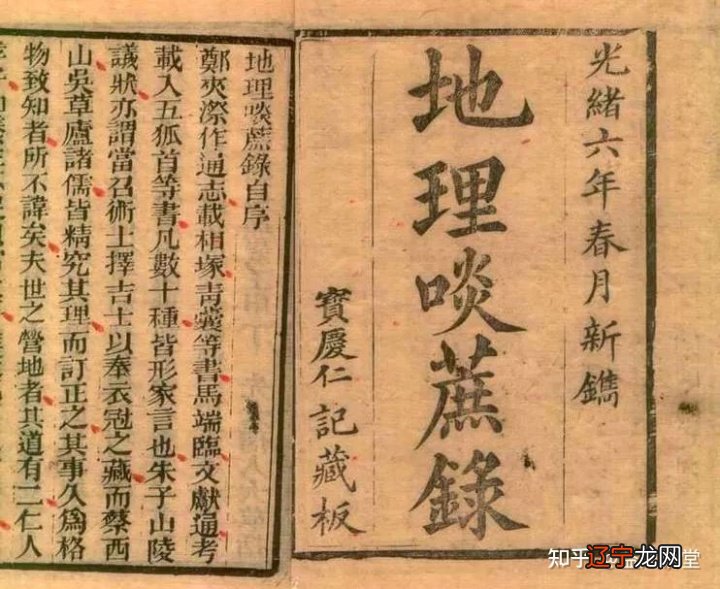 光緒六年春月新鐫
地理啖蔗錄
寶慶仁記藏板
地理啖蔗錄自序
鄭夾漈作通志載相塚青囊等書馬端臨文獻通考
載入五狐首等書凡數十種皆形家言也朱子山陵
議狀亦謂當召術士擇吉土以奉衣冠之藏而蔡西
山吳草廬諸儒皆精究其理而訂正之其事久爲格
物致知者所不諱矣夫世之營地者其道有二仁人
知乎 辽宁龙网 堂